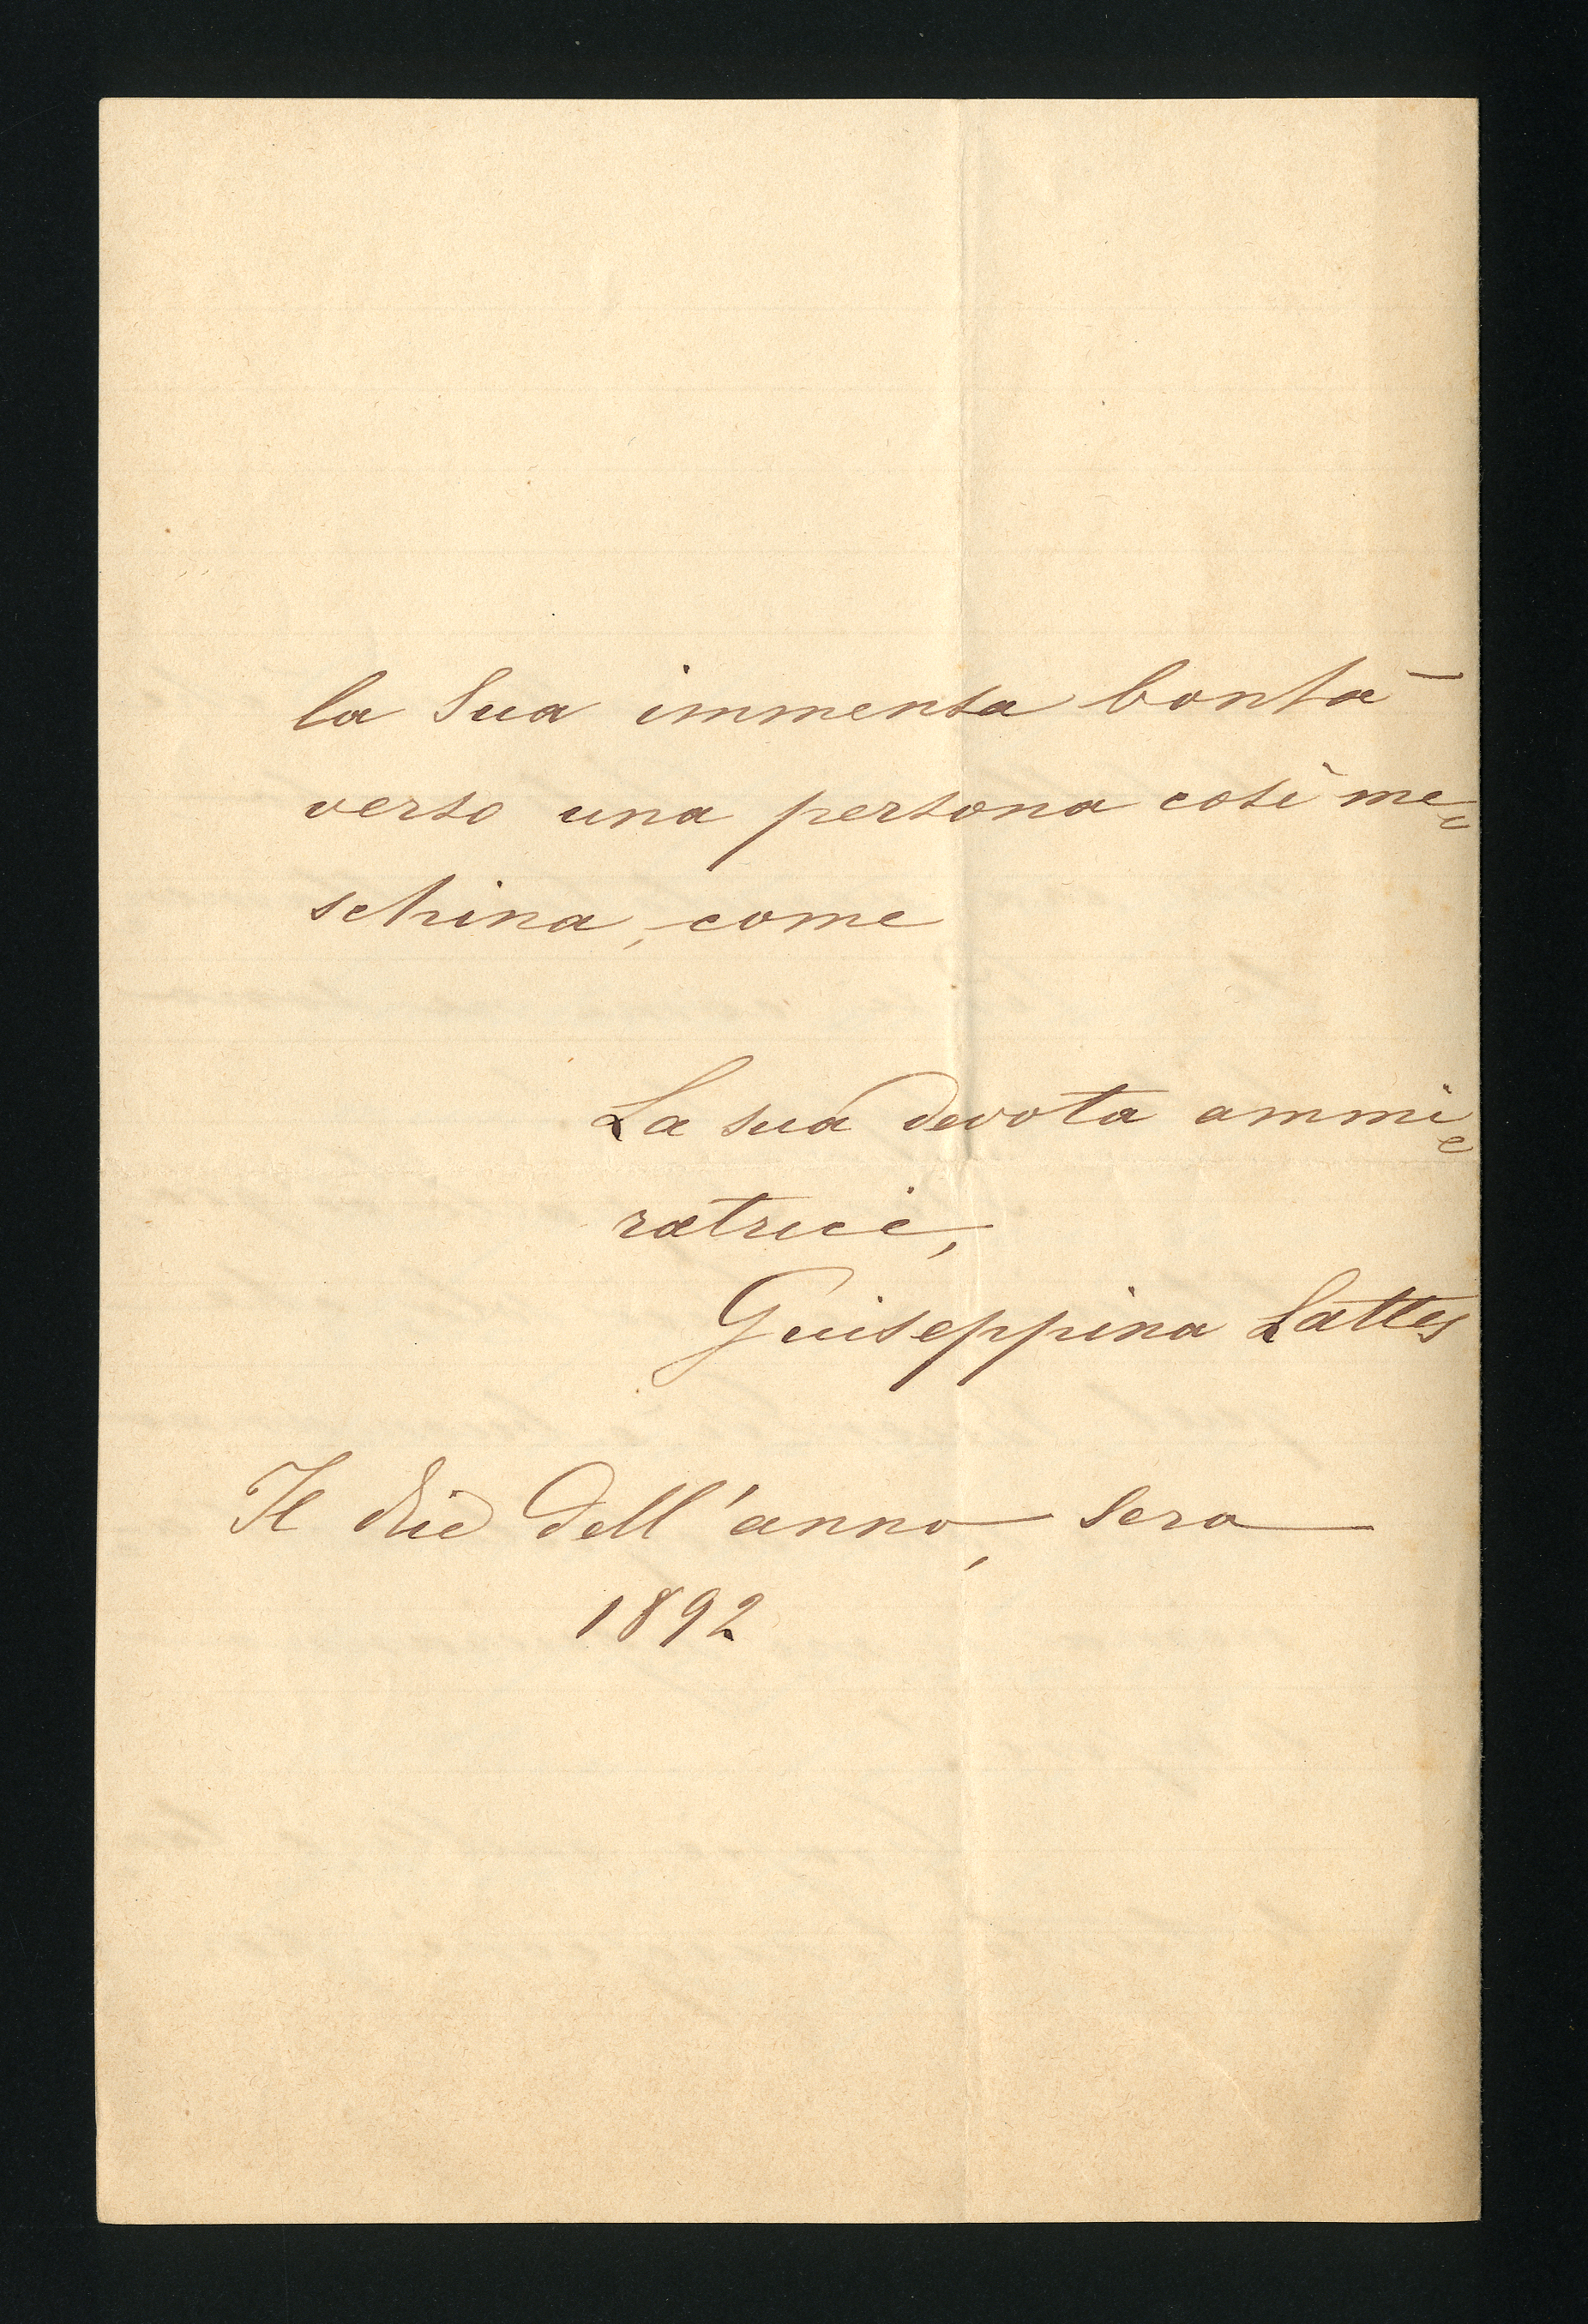 la Sua immensa bontà
verso una persona così me=
schina, come
La sua devota ammi=
ratrice,
Guiseppina Lattes
Il dell'anno, sera
1892